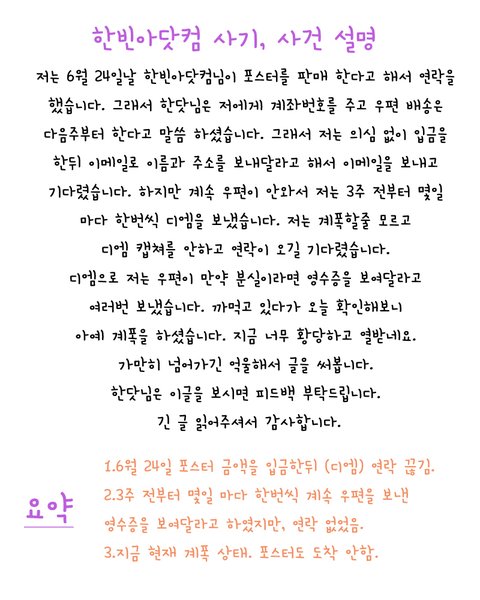 한빈아닷컴 사기, 사건 설명
저는 6월 24일날 한빈아닷컴님이 포스터를 판매 한다고 해서 연락을
했습니다. 그래서 한닷님은 저에게 계좌번호를 주고 우편 배송은
다음주부터 한다고 말씀 하셨습니다. 그래서 저는 의심 없이 입금을
한뒤 이메일로 이름과 주소를 보내달라고 해서 이메일을 보내고
기다렸습니다. 하지만 계속 우편이 안와서 저는 3주 전부터 몇일
마다 한번씩 디엠을 보냈습니다. 저는 계폭할줄 모르고
디엠 캡쳐를 안하고 연락이 오길 기다렸습니다.
디엠으로 저는 우편이 만약 분실이라면 영수증을 보여달라고
여러번 보냈습니다. 까먹고 있다가 오늘 확인해보니
아예 계폭을 하셨습니다. 지금 너무 황당하고 열받네요.
가만히 넘어가긴 억울해서 글을 써봅니다.
한닷님은 이글을 보시면 피드백 부탁드립니다.
긴 글 읽어주셔서 감사합니다.
요약
1.6월 24일 포스터 금액을 입금한뒤 (디엠) 연락 끊김.
2.3주 전부터 몇일 마다 한번씩 계속 우편을 보낸
영수증을 보여달라고 하였지만, 연락 없었음.
3.지금 현재 계폭 상태. 포스터도 도착 안함.